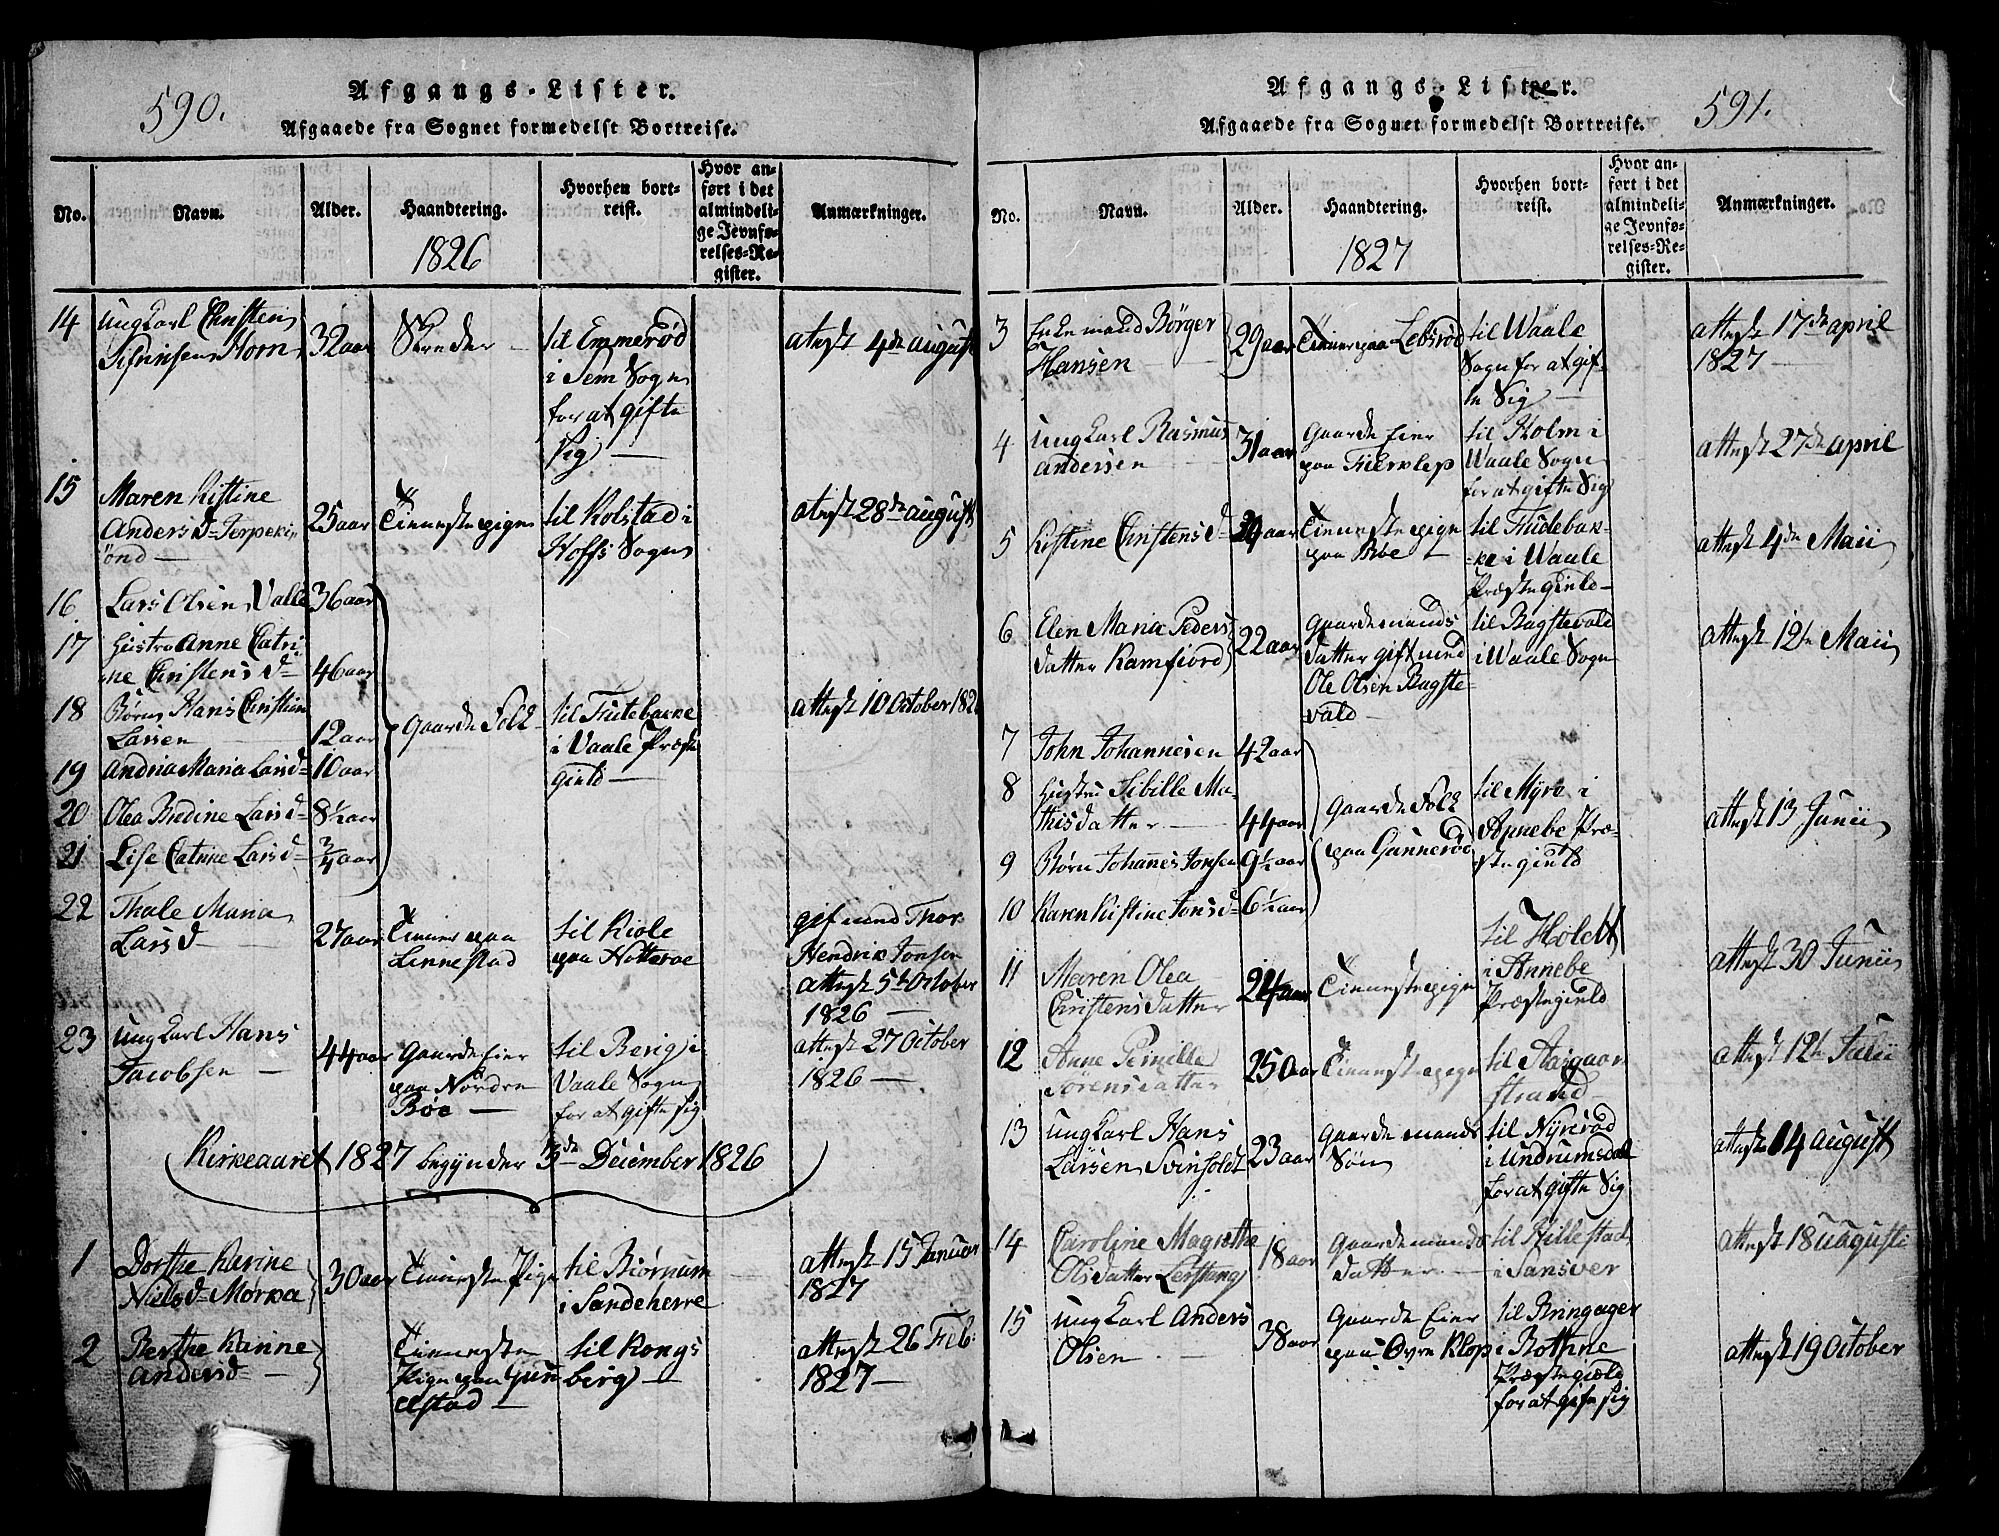 590.
Afgangs-Lister.
Afgaaede fra Sognet formedelst Bortreise.
No. Navn. Alder. Haandtering. Hvorhen bortreist. Hvor anført i det almindelige Jevnførelses-Register. Anmærkninger.
1826
14 Ungkarl Christen 32 aar Skreder til Emmerød attest 4de august
Horn i Sem Sogn
for at gifte
Sig
15 Maren Kistine 25 aar Tienestepigen til Kolstad i attest 28de august
Anders D Hoffs Sogn
ønd
16 Lars Olsen Valle 36 aar
17 Hustro Anne Catri
ne Christens D 46 aar
18 Børn Hans Christian Gaarde Folk til attest 10 October
Larsen 12 aar i Vaale Præste
19 Andria Maria Lars D 10 aar gield
20 Olea Bredine Lars D 8½ aar
21 Lise Catrine Lars D ¾ aar
22 Thale Maria 27 aar Tiener paa til Kiøle gift med Thor
Lars D Linnestad paa Hotteroe Hendrik Jonsen
attest 5te October
1826
23 Ungkarl Hans 44 aar Gaarde Eier til Berig i attest 27 October
Jacobsen paa Nordre Vaale Sogn 1826
Bøe for at gifte sig
Kirkeaaret 1827 begynder 3de December 1826
1 Dorthe Karine 30 aar Tieneste Pige til Biørnum attest 15 Januar
Niels D Mørka i Sandeherre 1827
2 Berthe Karine Tieneste til Kongs attest 26 Feb.
Anders D Pige paa berig 1827
elstad
591.
Afgangs-Lister.
Afgaaede fra Sognet formedelst Bortreise.
No. Navn. Alder. Haandtering. Hvorhen bortreist. Hvor anført i det almindelige Jevnførelses-Register. Anmærkninger.
1827
3 Enkemand Børger 29 aar Tiener paa Lebsrød til Waale attest 17de april
Hansen Sogn for at gif- 1827
te Sig
4 Ungkarl Rasmus 31 aar Gaarde Eier til Holm i attest 27de april
Andersen paa Waale Sogn
for at gifte Sig
5 Kistine Christens D aar Tienestepige til attest 4de Maii
paa Bøe i Waale
Præstegield
6 Elen Maria Peders 22 aar Gaardemands til Bagstevald attest 12te Maii
datter Ramfiord datter gift med i Waale Sogn
Ole Olsen Bagste
vald
7 John Johannesen 42 aar
8 Hustru Sibille Ma- Gaarde Folk til Myre i attest 13 Junii
thisdatter 44 aar paa Gunnerød Annebe Præ-
9 Børn Johannes Jonsen 9½ aar stegield
10 Karen Kistine Jons D 6½ aar
11 Maren Olea 24 aar Tienestepige til Holdt attest 30 Junii
Christensdatter i Annebe
Præstegield
12 Anne Pernille 25 aar Tienestepige til Aasgaar attest 12te Julii
Sørensdatter strand
13 Ungkarl Hans 23 aar Gaardemands til Nyrerød attest 14 august
Larsen Svinholdt Søn i Undrumsdal
for at gifte Sig
14 Caroline Magrethe 18 aar Gaardemands til Hillestad attest 18 augusti
Olsdatter Lerstang datter i Sansver
15 Ungkarl Anders 38 aar Gaarde Eier til Bringager attest 19 October
Olsen paa Øvre Klop i Bothne
Præstegield
for at gifte sig